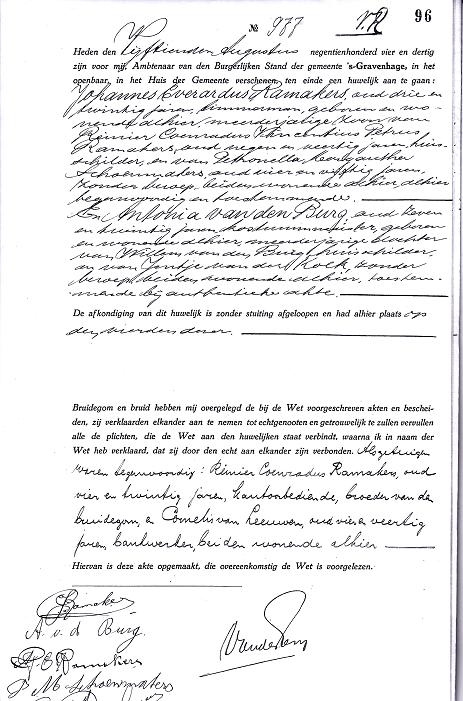 № 977 V.R 96
Heden den Vijftienden Augustus negentienhonderd vier en dertig
zijn voor mij, Ambtenaar van den Burgerlijken Stand der gemeente 's-Gravenhage, in het
openbaar, in het Huis der Gemeente verschenen, ten einde een huwelijk aan te gaan:
Johannes Everardus Ramakers, oud drie en
twintig jaren, timmerman, geboren en wo-
nende alhier, meerderjarige zoon van
Reinier Coenradus Vincentius Petrus
Ramakers, oud negen en veertig jaren, huis-
schilder, en van Petronella
Schoenmakers, oud vier en vijftig jaren,
zonder beroep, beiden wonende alhier, alhier
tegenwoordig en toestemmende.
En Antonia van den Burg, oud zeven
en twintig jaren, kostuumnaaister, geboren
en wonende alhier, meerderjarige dochter
van Willem van den Burg, huisschilder,
en van Jontje van der Kolk, zonder
beroep, beiden wonende alhier, toestem-
mende bij authentieke akte.
De afkondiging van dit huwelijk is zonder stuiting afgeloopen en had alhier plaats op
den vierden dezer.
Bruidegom en bruid hebben mij overgelegd de bij de Wet voorgeschreven akten en beschei-
den, zij verklaarden elkander aan te nemen tot echtgenooten en getrouwelijk te zullen vervullen
alle de plichten, die de Wet aan den huwelijken staat verbindt, waarna ik in naam der
Wet heb verklaard, dat zij door den echt aan elkander zijn verbonden. Als getuigen
waren tegenwoordig: Reinier Coenradus Ramakers, oud
vier en twintig jaren, kantoorbediende, broeder van den
bruidegom, en Cornelis van Leeuwen, oud vier en veertig
jaren, bankwerker, beiden wonende alhier
Hiervan is deze akte opgemaakt, die overeenkomstig de Wet is voorgelezen.
Ramakers
A. v. d. Burg.
Ramakers
P M Schoenmakers